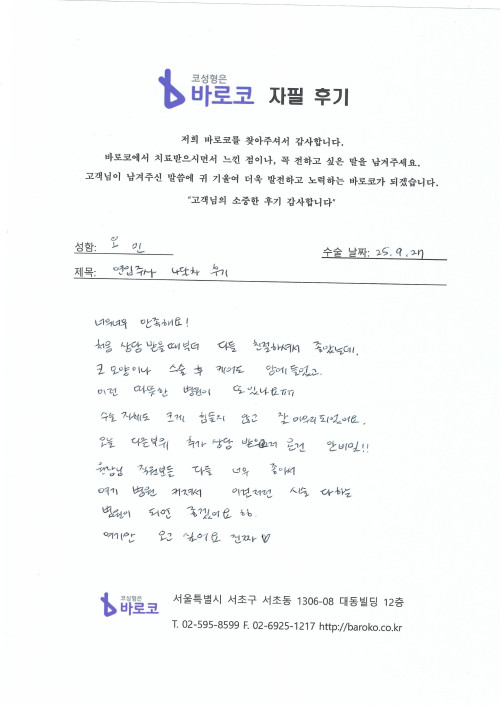 코성형은
바로코 자필 후기
저희 바로코를 찾아주셔서 감사합니다.
바로코에서 치료받으시면서 느낀 점이나, 꼭 전하고 싶은 말을 남겨주세요.
고객님이 남겨주신 말씀에 귀 기울여 더욱 발전하고 노력하는 바로코가 되겠습니다.
"고객님의 소중한 후기 감사합니다"
성함: 오 인
수술 날짜: 25. 9. 27
제목: 4일차 후기
너무너무 만족해요!
처음 상담 받을때부터 다들 친절하셔서 좋았는데,
코 모양이나 수술 후 케어도 맘에 들었고.
이런 따뜻한 병원이 또 있나요
수술 자체도 크게 힘들지 않고 잘 마무리 되었어요.
오늘 다른부위 추가 상담 받은 건 안비밀!!
원장님 직원분들 다들 너무 좋아서
여기 병원 커져서 이런저런 시술 다하는
병원이 되면 좋겠어요 ㅎㅎ
여기만 오고 싶어요 진짜 ♡
코성형은
바로코
서울특별시 서초구 서초동 1306-08 대동빌딩 12층
T. 02-595-8599 F. 02-6925-1217 http://baroko.co.kr